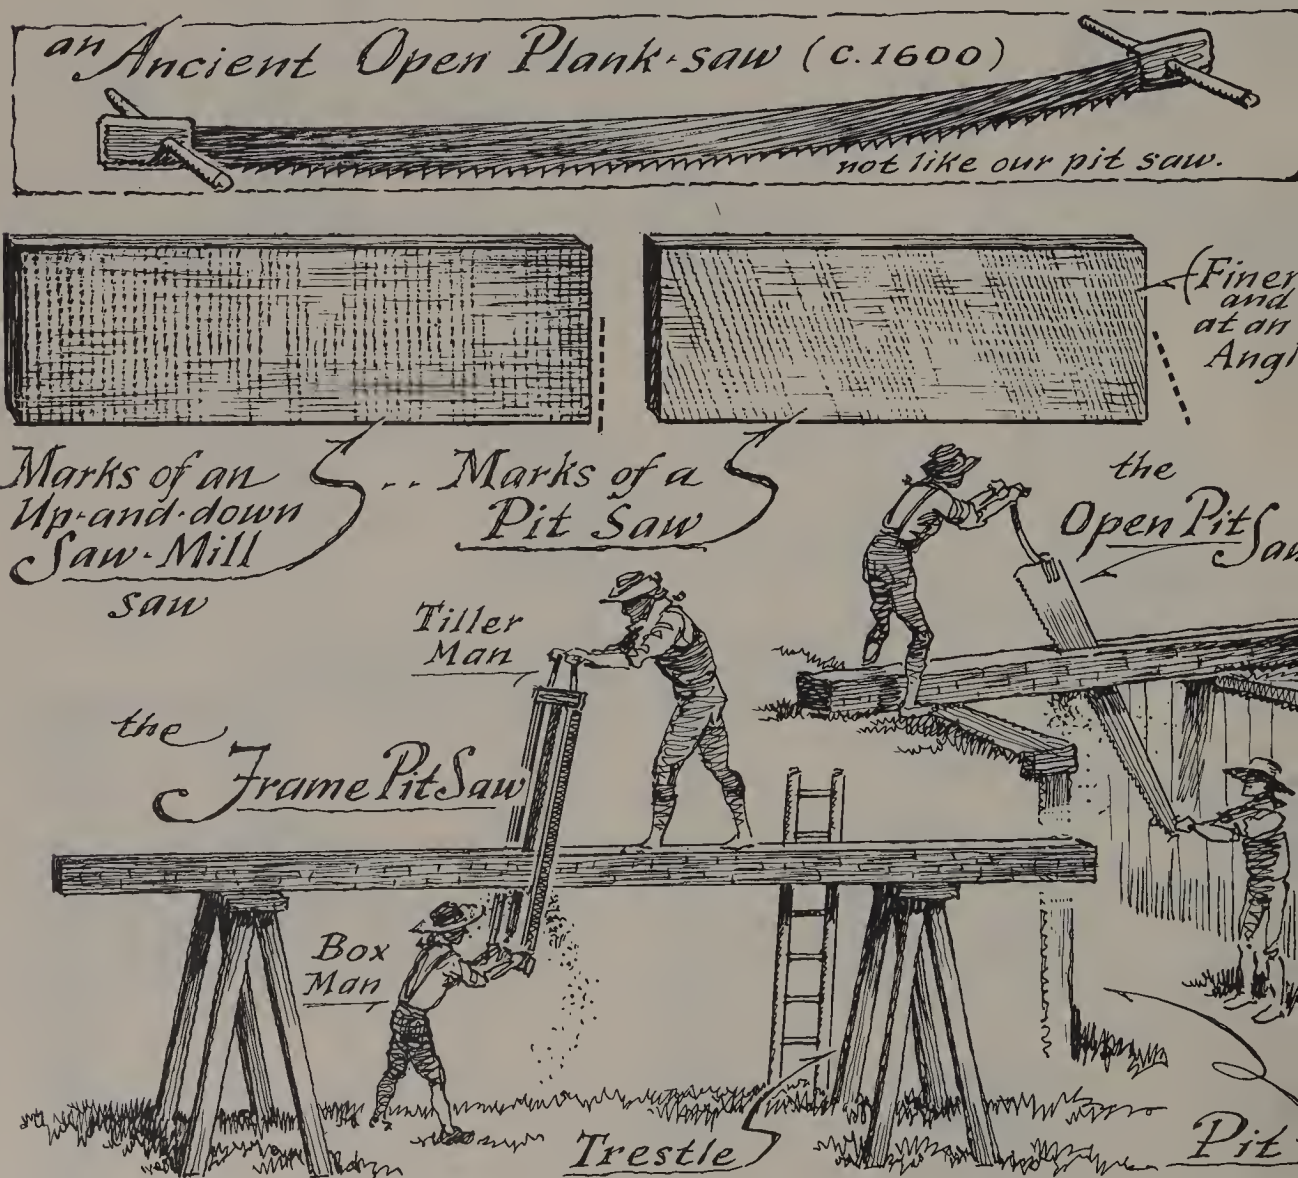 an Ancient Open Plank-saw (c.1600)
not like our pit saw.
(Finer
and
at an
Marks of an
Up-and-down
Saw-Mill
saw
.. Marks of a
Pit Saw
the
Open Pit
Tiller
Man
the
Frame Pit Saw
Box
Man
Trestle
Pit